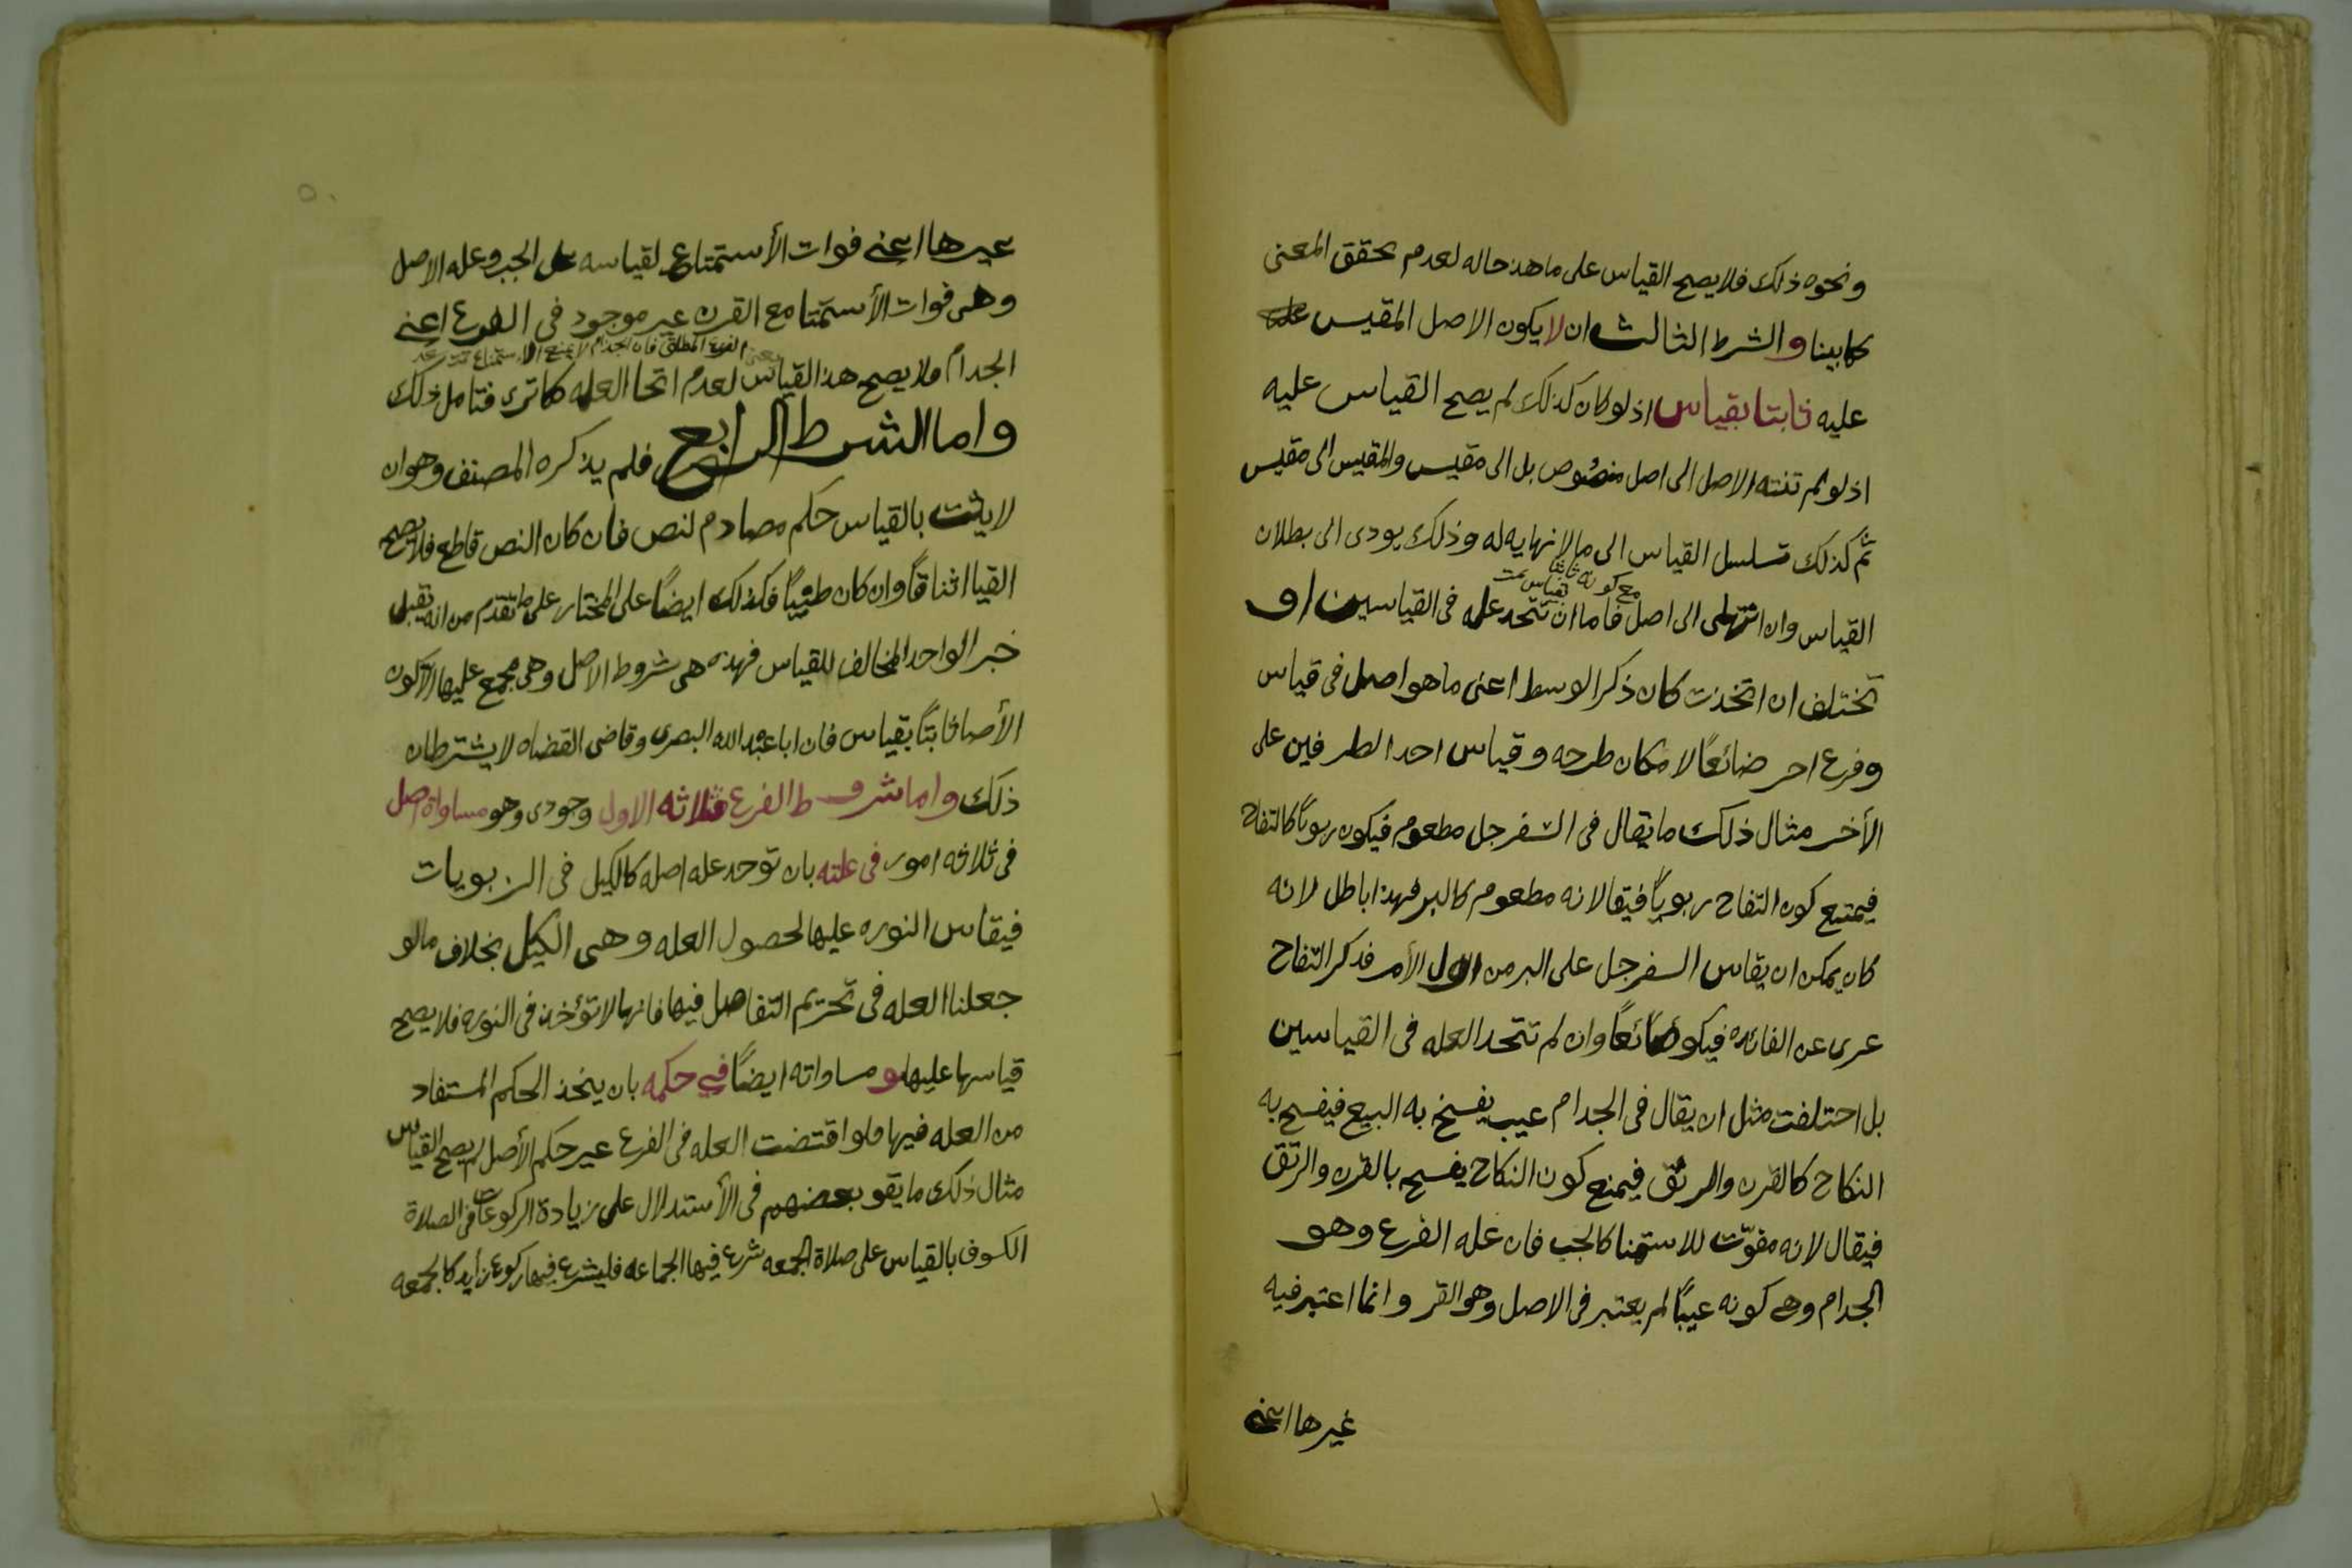 ونحوه ذلك فلا يصح القياس على ما هذ حاله لعدم تحقق المعنى
كما بينا والشرط الثالث ان لا يكون الاصل المقيس
عليه ثابتا بقياس اذ لو كان كذلك لم يصح القياس عليه
اذ لو لم تنته الاصل الى اصل منصوص بل الى مقيس والمقيس الى مقيس
ثم كذلك تسلسل القياس الى ما لا نهايه له وذلك يودى الى بطلان
مع كونه ثابتا بقياس
القياس وان انتهى الى اصل فاما ان تتحد عله فى القياسين او
تختلف ان اتخذت كان ذكر الوسط اعنى ما هو اصل فى قياس
وفرع اخر ضائعًا لامكان طرحه وقياس احد الطرفين على
الأخر مثال ذلك ما يقال فى السفرجل مطعوم فيكون ربويًا كالتفاح
فيمتنع كون التفاح ربويًا فيقا لانه مطعوم كالبر فهذا باطل لانه
كان يمكن ان يقاس السفرجل على البر من اول الأمر فذكر التفاح
عرى عن الفائده فيكو ضائعًا وان لم تتحد العله فى القياسين
بل اختلفت مثل ان يقال فى الجدام عيب يفسخ به البيع فيفسح به
النكاح كالقرن والرتق فيمنع كون النكاح يفسح بالقرن والرتق
فيقال لانه مفوّت للاستمتا كالجب فان عله الفرع وهو
الجدام وهى كونه عيبًا لم يعتبر فى الاصل وهو القر وانما اعتبر فيه
غيرها اعنى
غيرها اعنى فوات الأستمتاع لقياسه على الجب وعله الاصل
وهى فوات الأستمتا مع القرن غير موجود فى الفرع اعنى
الفرع المطلق فان الجذام لا يمنع الاستمتاع
الجدام فلا يصح هذ القياس لعدم اتحا العله كما ترى فتامل ذلك
واما الشرط الرابع فلم يذكره المصنف وهو ان
لا يثبت بالقياس حكم مصادم لنص فان كان النص قاطع فلا يصح
القيا اتفاقًا وان كان ظنيًا فكذلك ايضًا على المختار على ما تقدم من انه يقبل
خبر الواحد المخالف للقياس فهذه هى شروط الاصل وهى مجمع عليها الا كون
الأصل ثابتًا بقياس فان ابا عبد الله البصرى وقاضى القضاه لا يشترطان
ذلك واما شروط الفرع فثلاثه الاول وجودى وهو مساواة اصل
فى ثلاثه امور فى علته بان توجد عله اصله كالكيل فى الربويات
فيقاس النوره عليها لحصول العله وهى الكيل بخلاف ما لو
جعلنا العله فى تحريم التفاضل فيها فانها لا تؤخذ فى النوره فلا يصح
قياسها عليها و مساواته ايضًا في حكمه بان يتخذ الحكم المستفاد
من العله فيها فلو اقتضت العله فى الفرع غير حكم الأصل لم يصح القياس
مثال ذلك ما يقو بعضهم فى الأستدلال على زيادة الركوعات فى الصلاة
الكسوف بالقياس على صلاة الجمعه شرع فيها الجماعه فليشرع فيها ركوع زايد كالجمعه